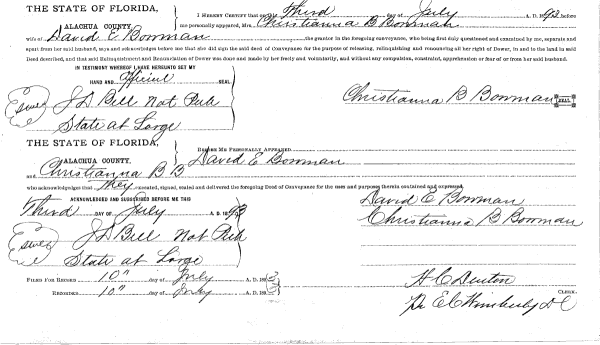 THE STATE OF FLORIDA,
ALACHUA COUNTY.
I HEREBY CERTIFY that on this Third day of July A. D. 1893 before
me personally appeared, Mrs. Christianna B Bowman
wife of David E. Bowman the grantor in the foregoing conveyance, who being first duly questioned and examined by me, separate and
apart from her said husband, says and acknowledges before me that she did sign the said deed of Conveyance for the purpose of releasing, relinquishing and renouncing all her right of Dower, in and to the land in said
Deed described, and that said Relinquishment and Renunciation of Dower was done and made by her freely and voluntarily, and without any compulsion, constraint, apprehension or fear of or from her said husband.
IN TESTIMONY WHEREOF I HAVE HEREUNTO SET MY
HAND AND Official SEAL
J D Bell Not Pub
State at Large
Christianna B Bowman SEAL
THE STATE OF FLORIDA,
ALACHUA COUNTY.
BEFORE ME PERSONALLY APPEARED David E Bowman
and Christianna B B
who acknowledges that they executed, signed, sealed and delivered the foregoing Deed of Conveyance for the uses and purposes therein contained and expressed.
ACKNOWLEDGED AND SUBSCRIBED BEFORE ME THIS
Third DAY OF July A. D. 1893
David E Bowman
Christianna B Bowman
J D Bell Not Pub
State at Large
FILED FOR RECORD 10" day of July A. D. 189
RECORDED 10" day of July A. D. 189
H C Denton CLERK.
Pr E C Wimberly D C